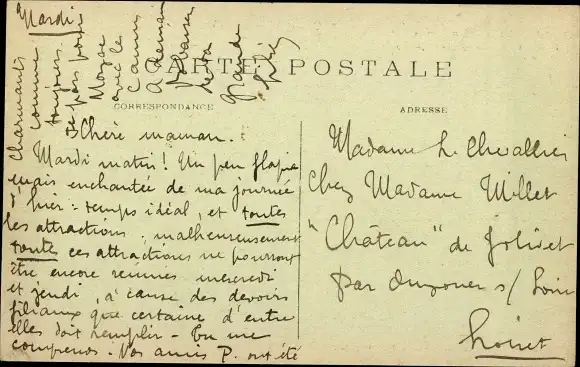 Mardi
CARTE POSTALE
CORRESPONDANCE
ADRESSE
Chère maman.
Mardi matin! Un peu flapie
mais enchantée de ma journée
d'hier : temps idéal, et toutes
les attractions, malheureusement
toutes ces attractions ne pourront
être encore réunies mercredi
et jeudi, à cause des devoirs
filiaux que certaine d'entre
elles doit remplir - Tu me
comprends. Nos amis P. ont été
charmants
comme
toujours.
avec les
A demain
Madame L. Chevallier
Chez Madame Millet
"Château" de Jolivet
par Ouzouer s/ Loire
Loiret